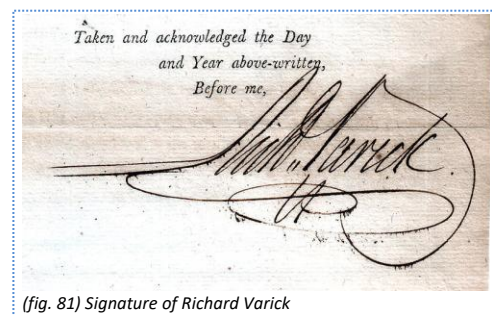 Taken and acknowledged the Day
and Year above-written,
Before me,
Richd. Varick.
(fig. 81) Signature of Richard Varick